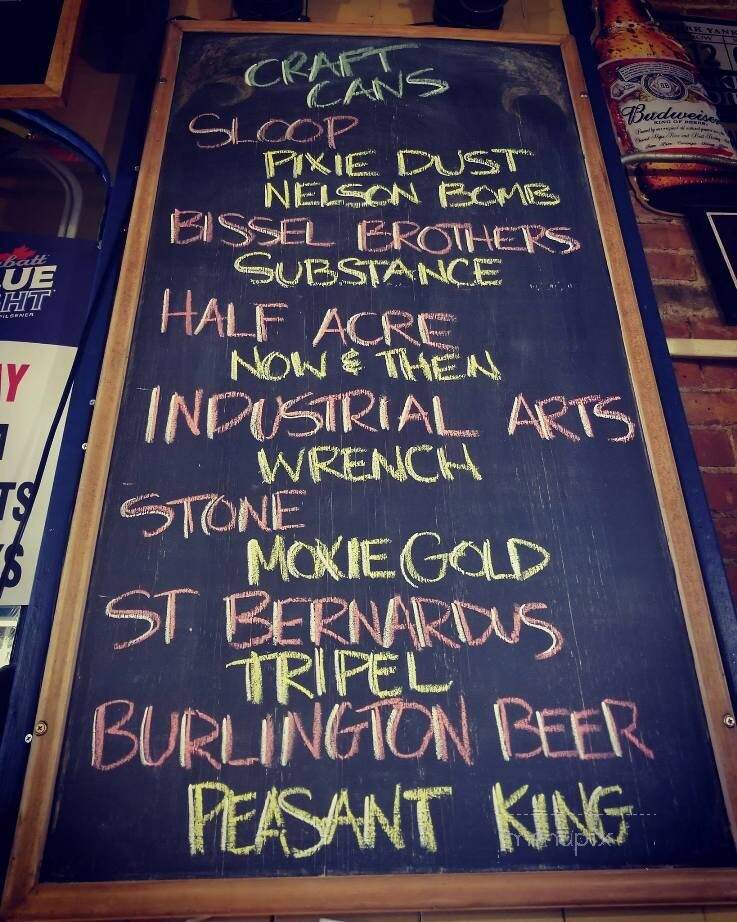 CRAFT
CANS
SLOOP
PIXIE DUST
NELSON BOMB
BISSEL BROTHERS
SUBSTANCE
HALF ACRE
NOW & THEN
INDUSTRIAL ARTS
WRENCH
STONE
MOXIE GOLD
ST BERNARDUS
TRIPEL
BURLINGTON BEER
PEASANT KING
Budweiser
KING OF BEERS
batt
UE
HT
PILSENER
AY
TS